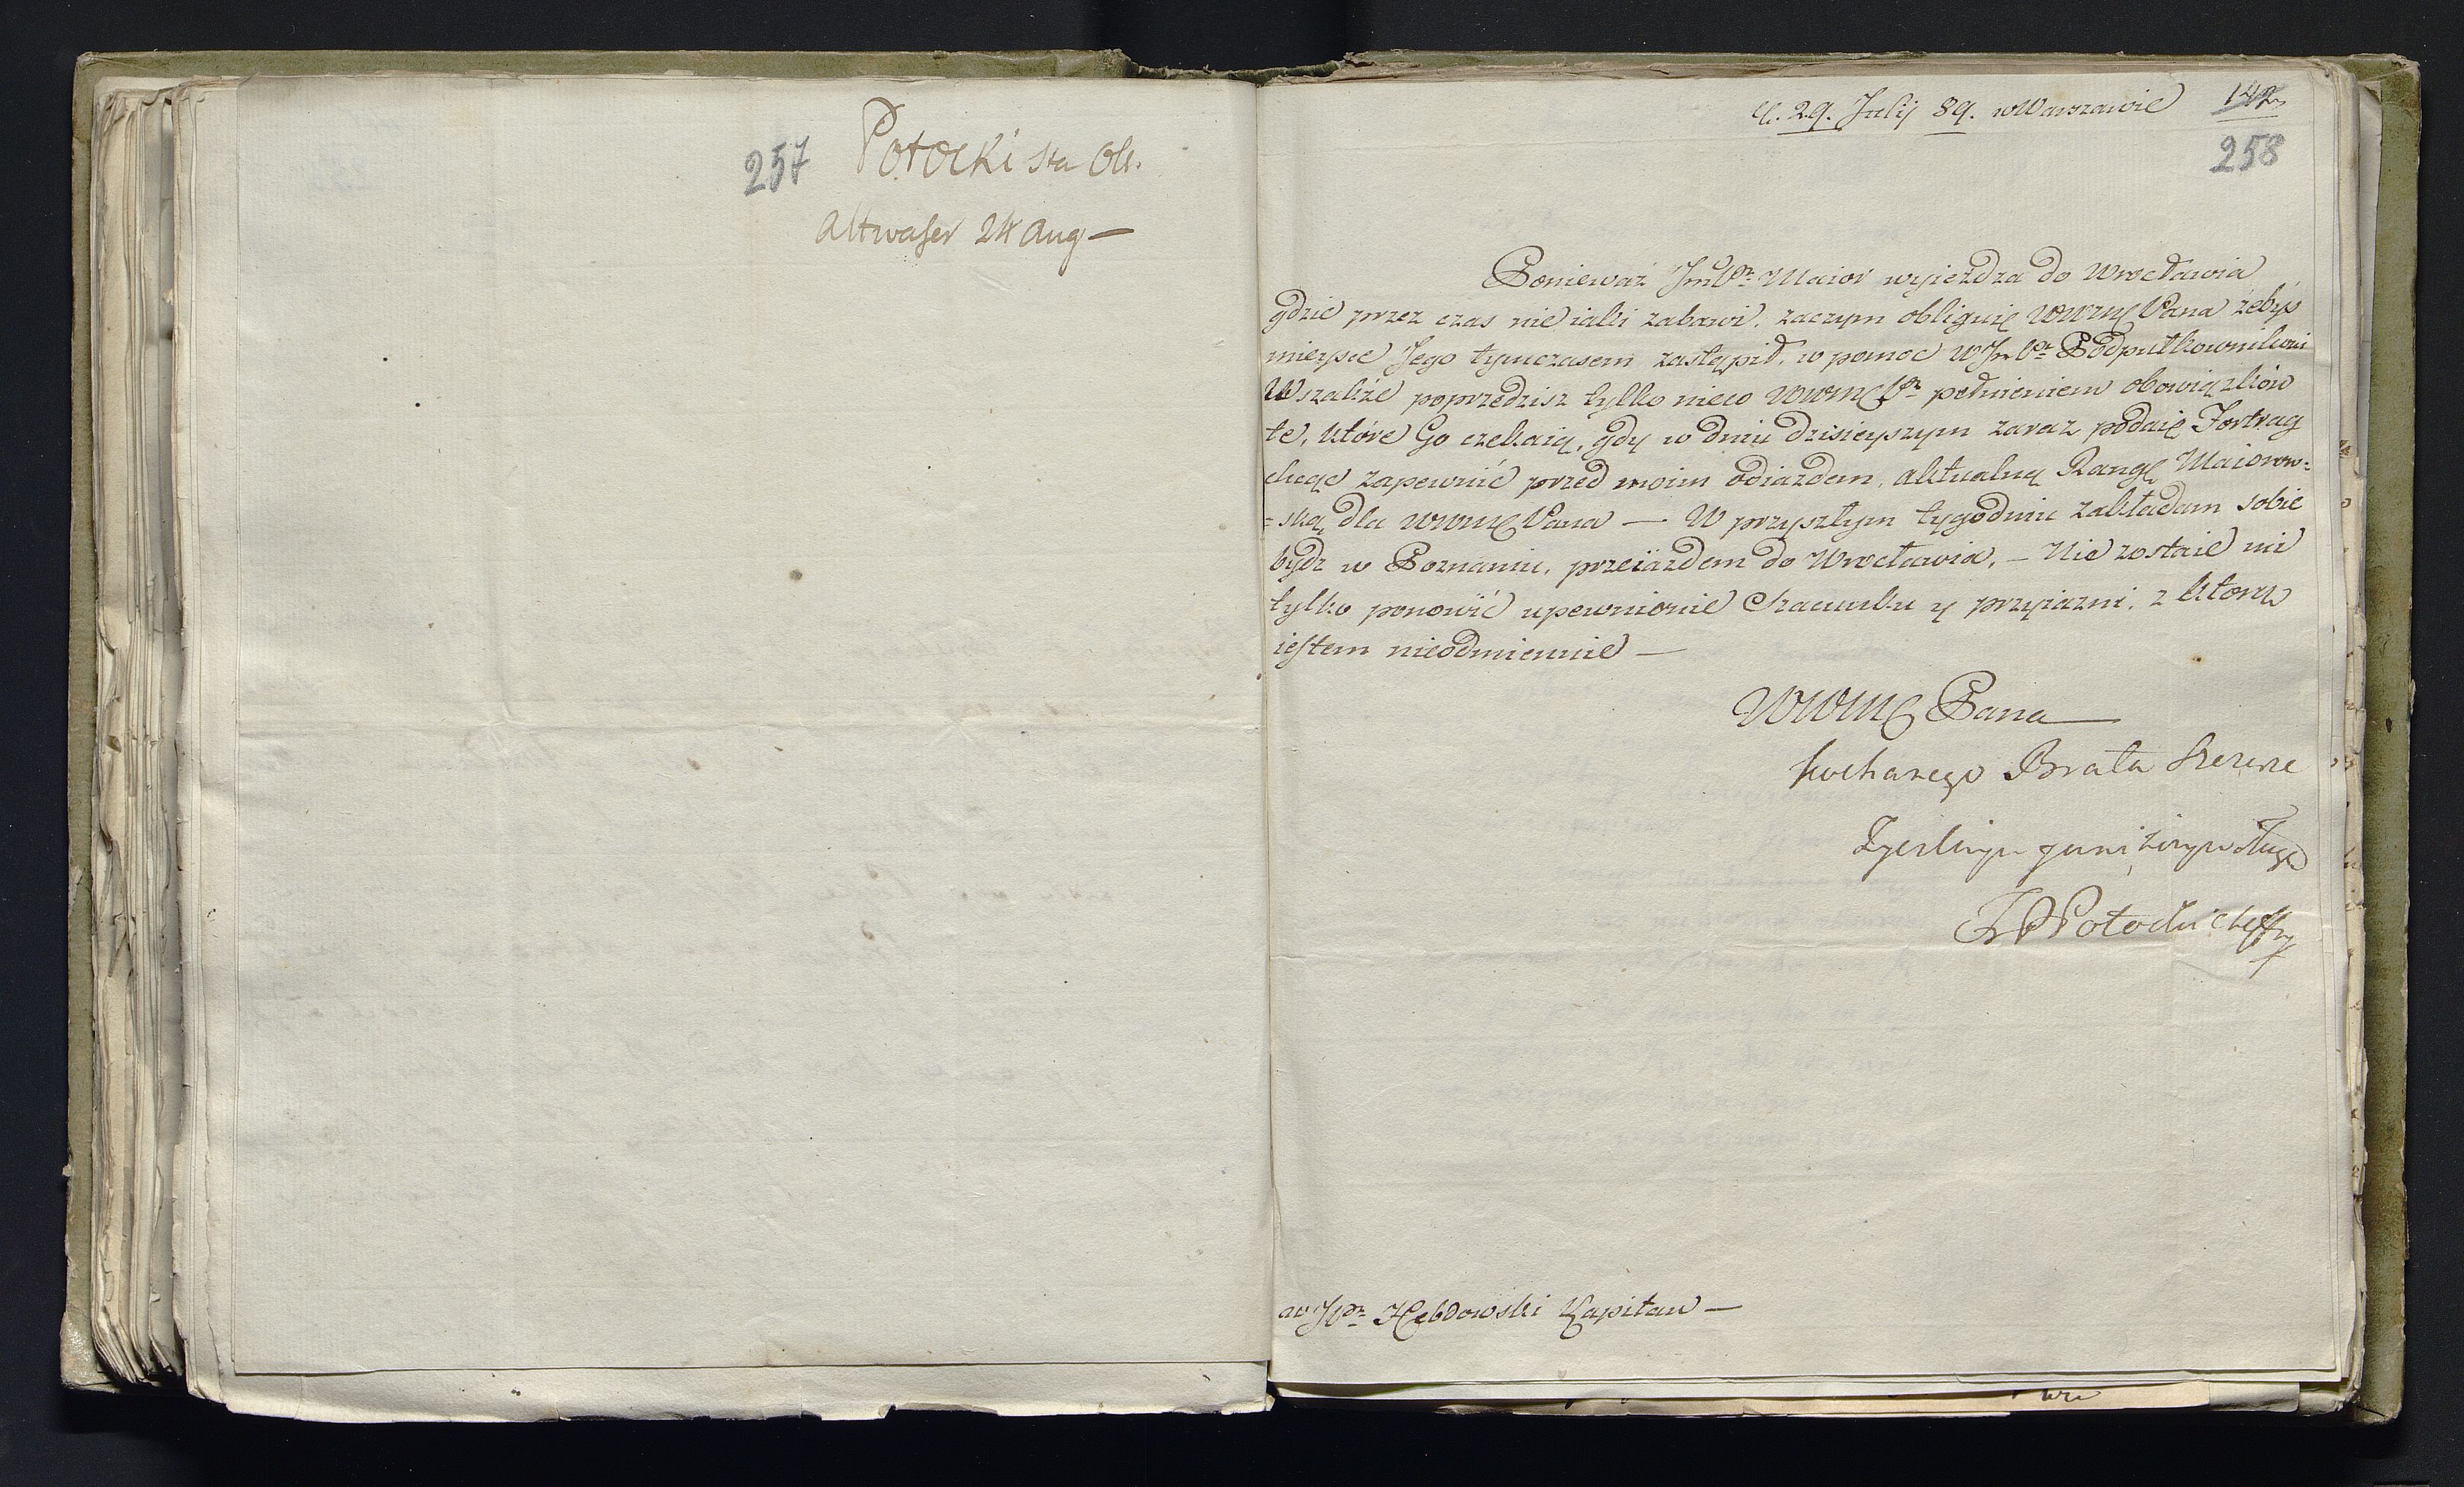 257 Potocki sta Ols.
Altwaſer 24 Aug —
d. 29. Julij 89. w Warszawie 142
258
Ponieważ JmPn Maior wyieżdza do Wrocławia
gdzie przez czas nie iaki zabawi, zaczym obliguię WWMC Pana żebyś
mieysce Jego tymczasem zastąpił, w pomoc WJmPn Podpułkownikowi
Wszakże poprzedzisz tylko nieco WWMC Pn pełnieniem obowiązków
te, które Go czekaią, gdy w dniu dzisieyszym zaraz podaię Fortrag
chcąc zapewnić przed moim odiazdem, aktualną Rangę Maiorow=
=ską dla WWMC Pana — W przyszłym tygodniu zakładam sobie
bydz w Poznaniu, przeiazdem do Wrocławia, — Nie zostaie mi
tylko ponowić upewnienie szacunku y przyiazni, z ktorą
ieſtem nieodmiennie —
WWMC Pana
kochanego Brata szczerze
życzliwym y uniżonym sługą
Potocki Szeff
WJPn Hebdowski Kapitan —